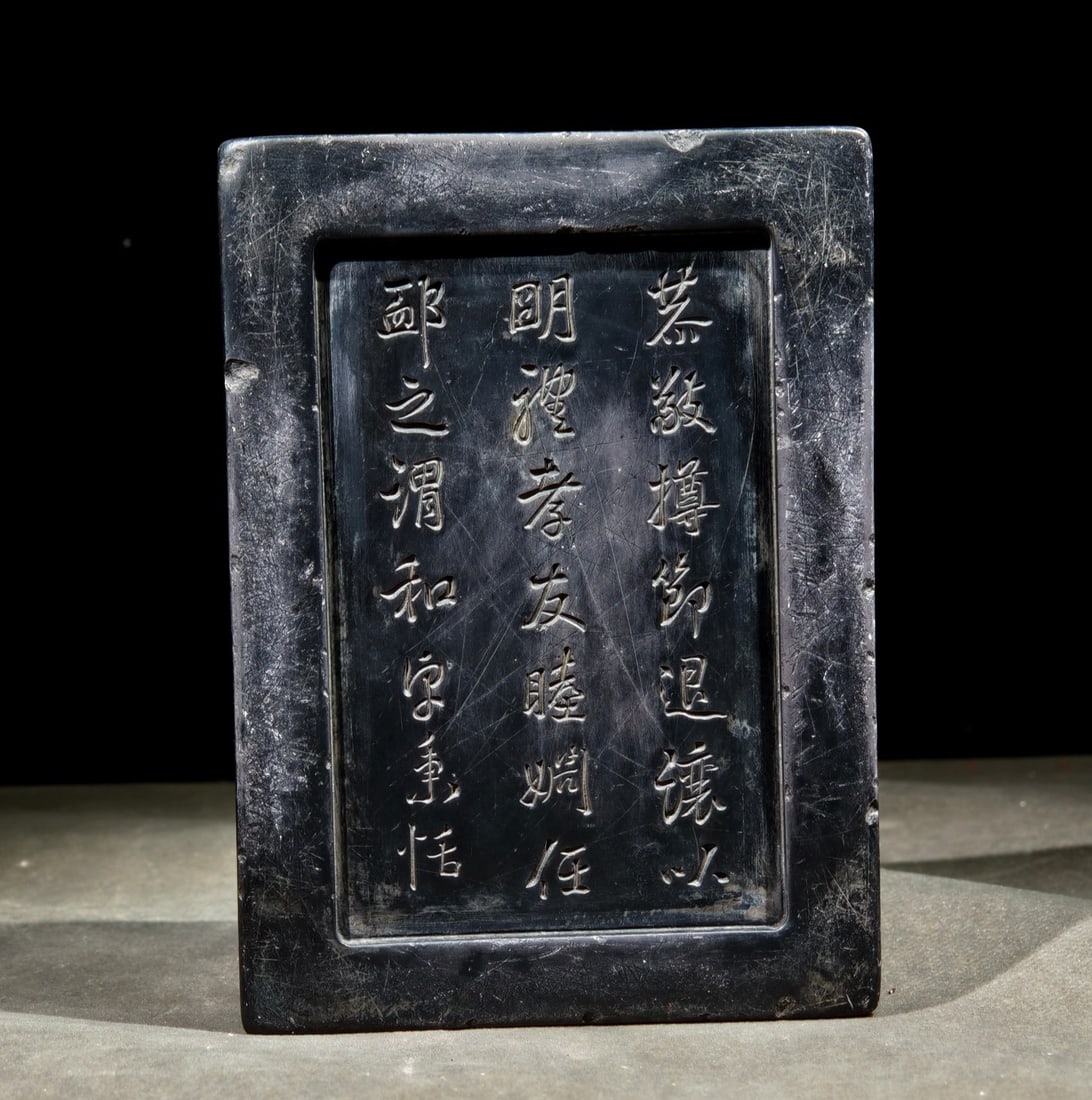 恭敬撙節退讓以
明禮孝友睦婣任
卹之謂和字秉恬